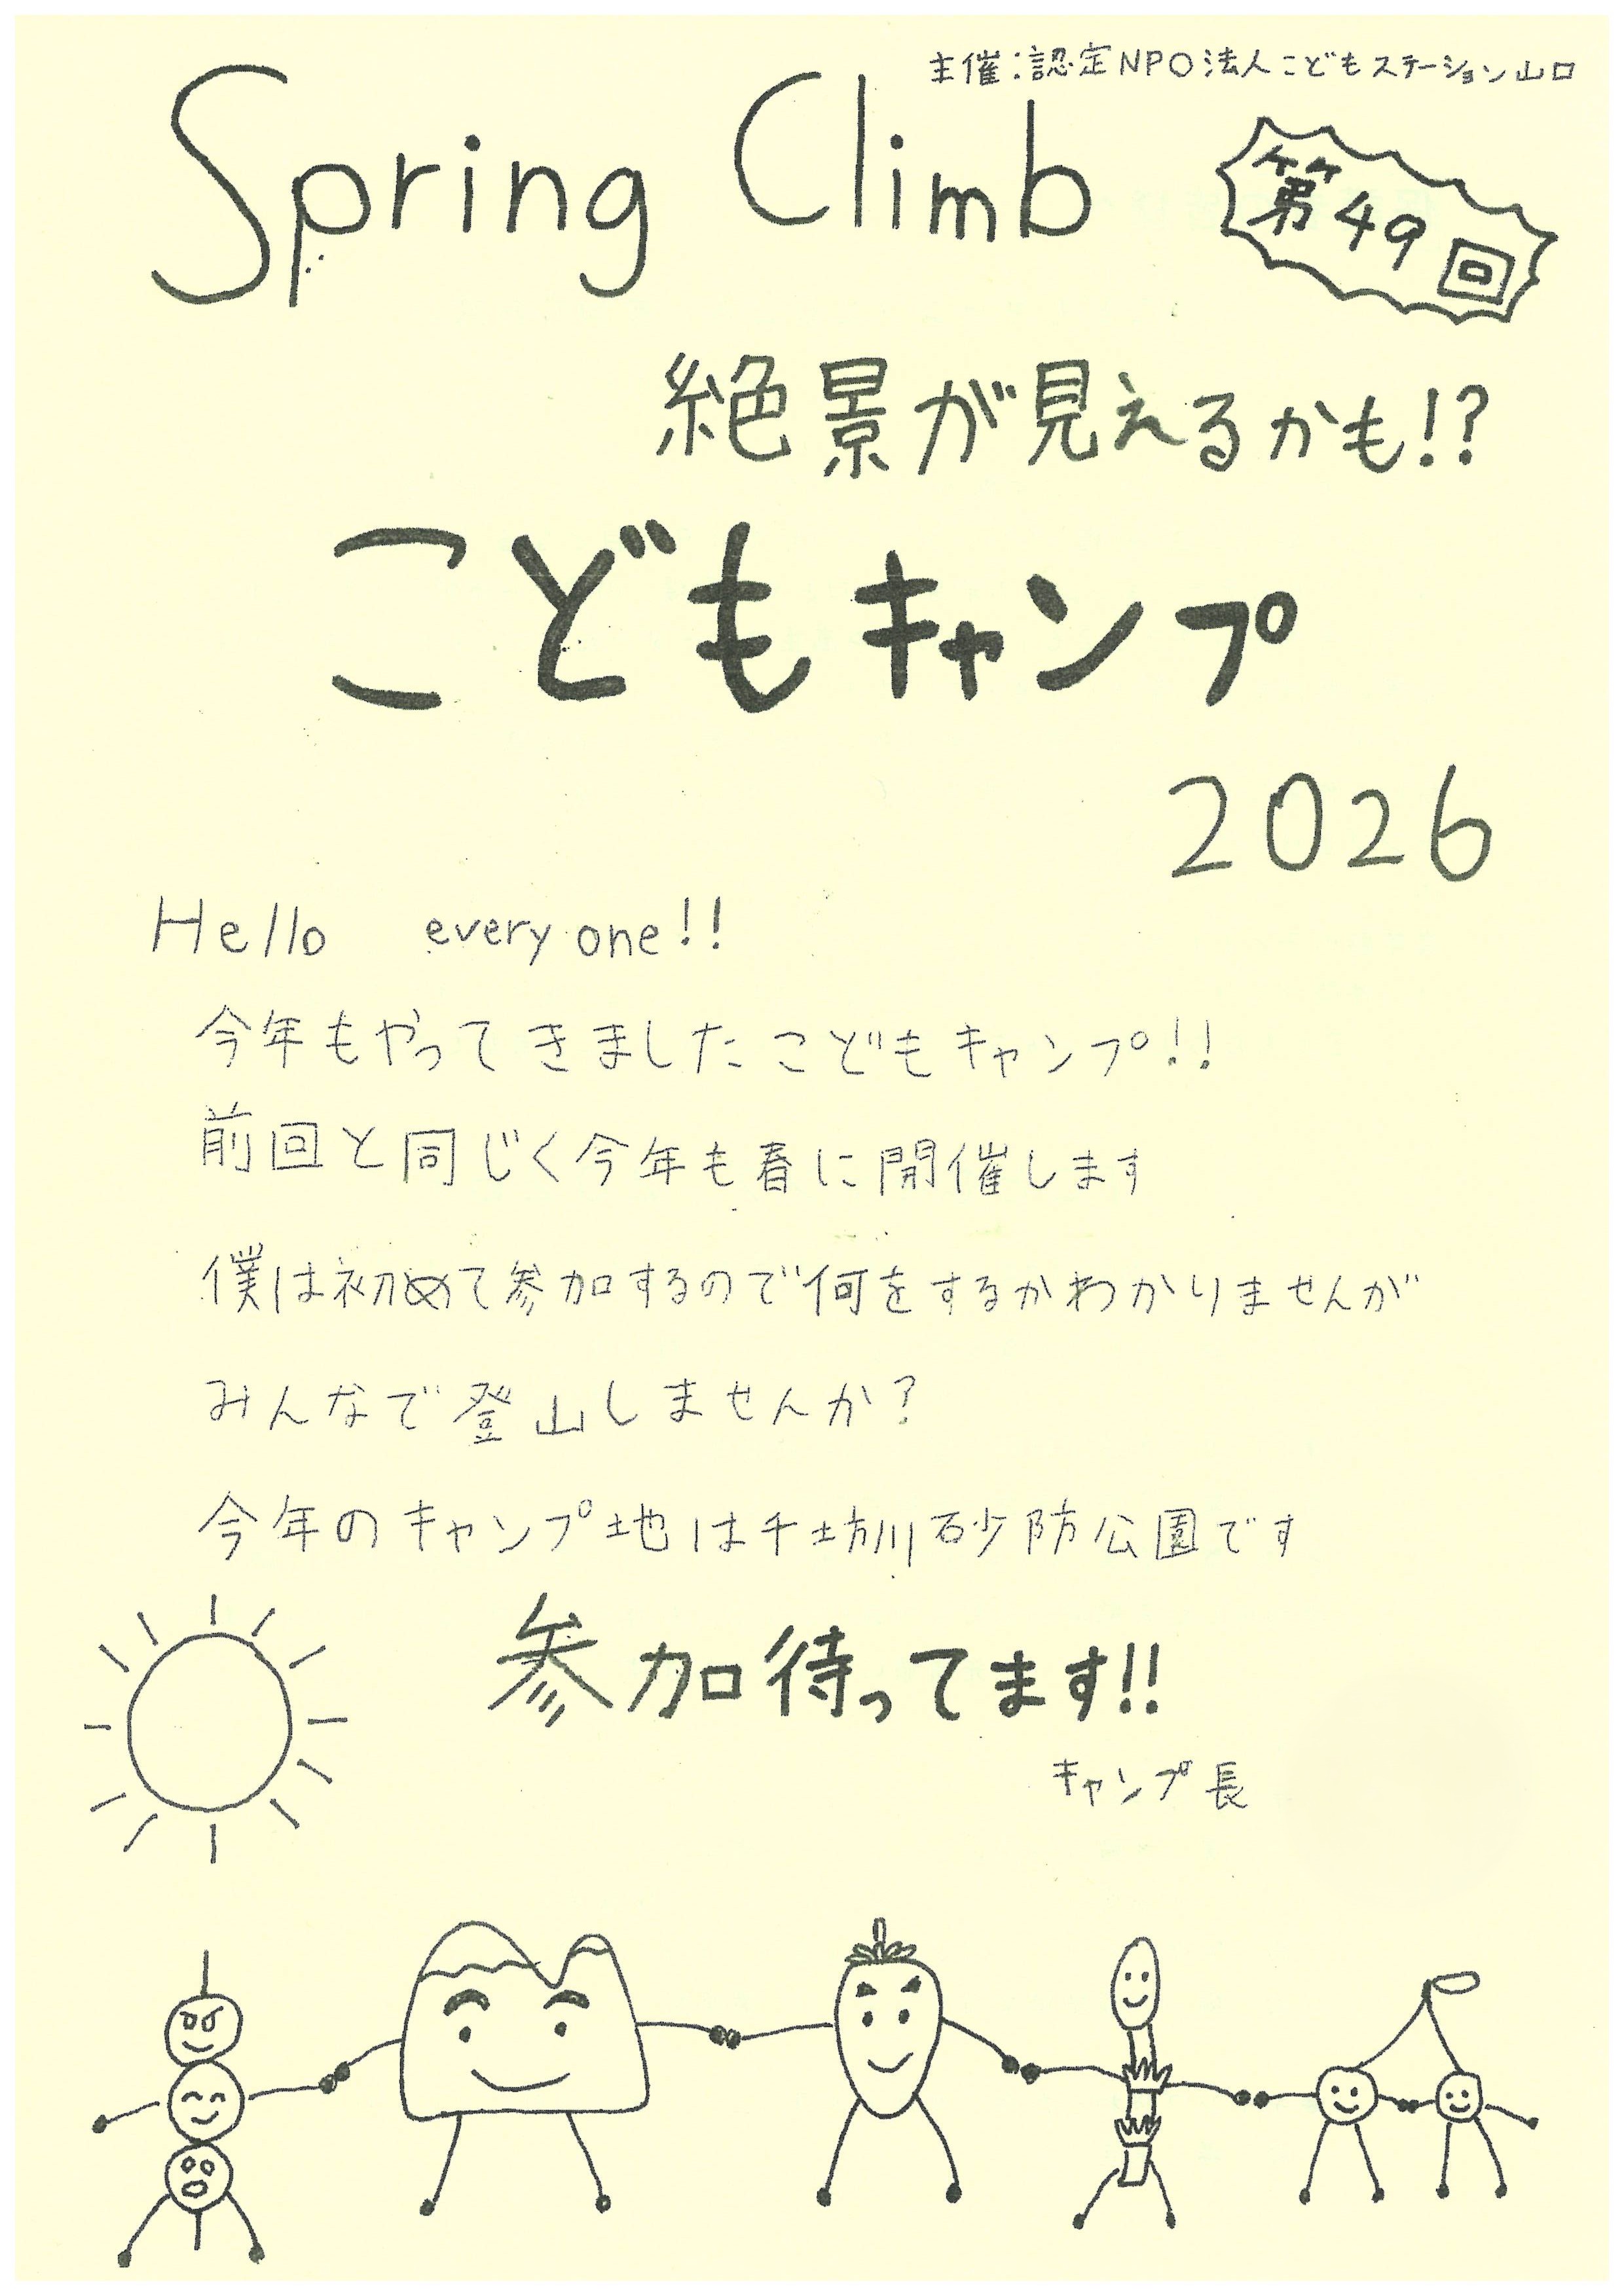 主催:認定NPO法人こどもステーション山口
Spring Climb
第49回
絶景が見えるかも!?
こどもキャンプ
2026
Hello everyone!!
今年もやってきましたこどもキャンプ!!
前回と同じく今年も春に開催します
僕は初めて参加するので何をするかわかりませんが
みんなで登山しませんか?
今年のキャンプ地は千坊川砂防公園です
参加待ってます!!
キャンプ長